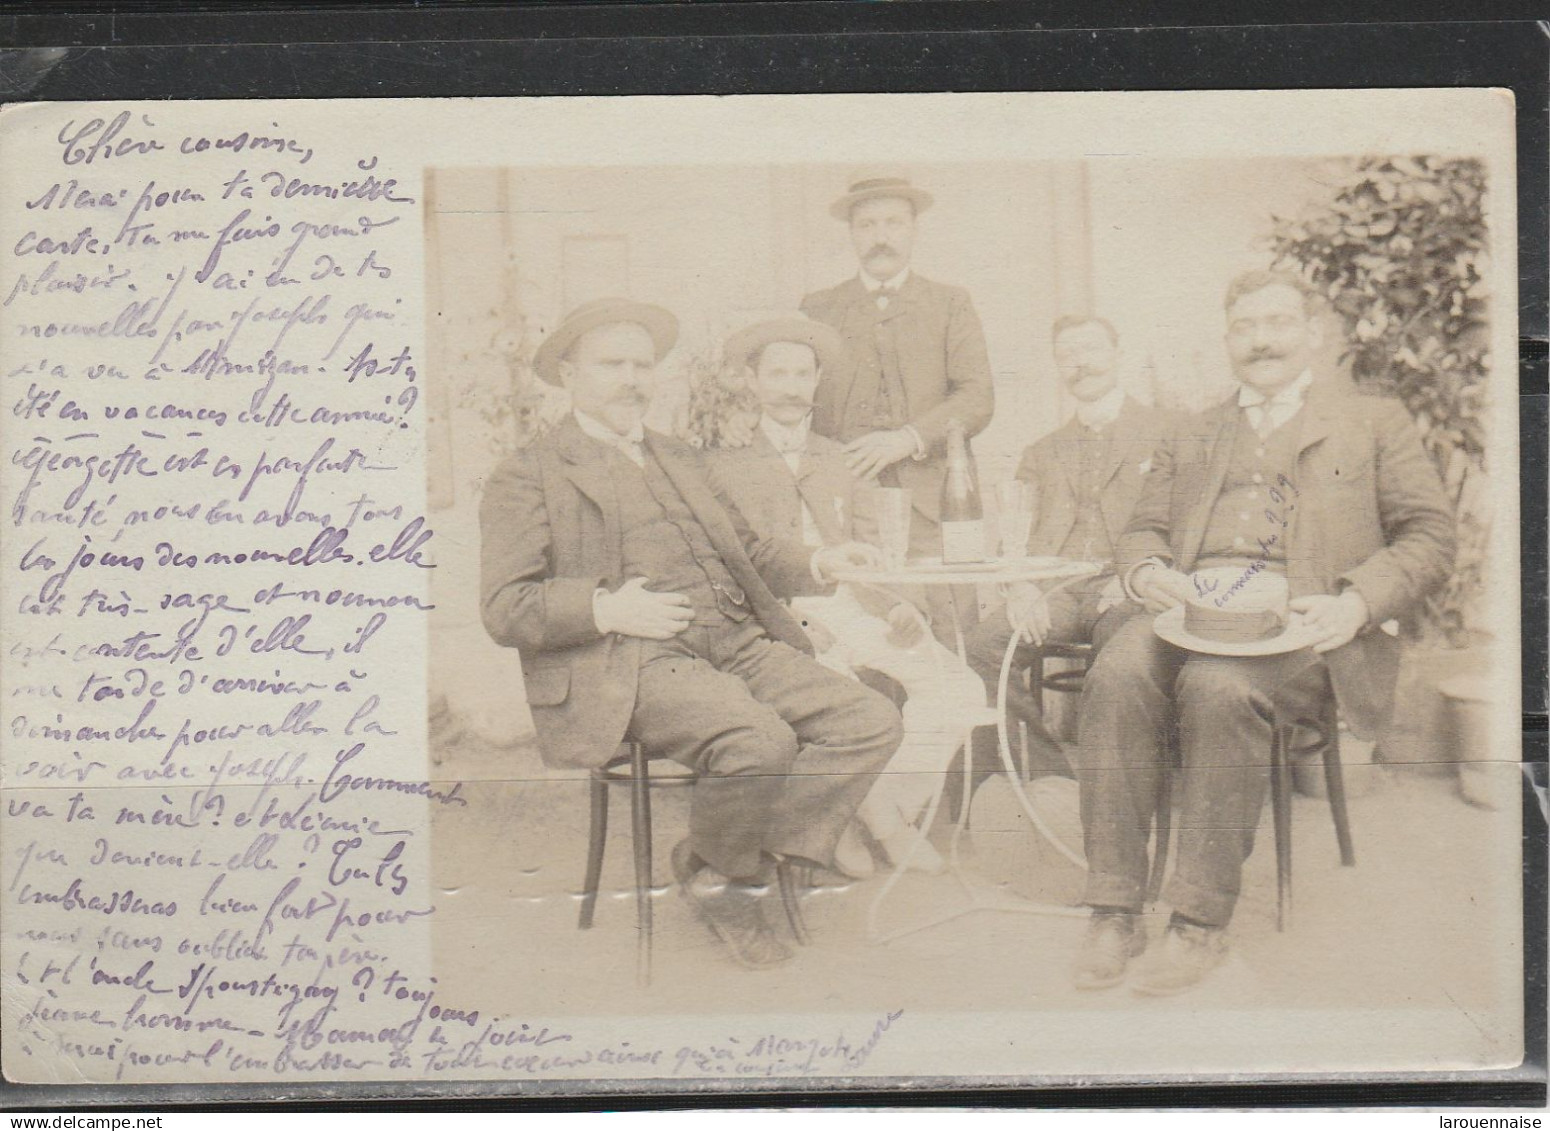 Chère cousine,
Merci pour ta dernière
carte, Tu me fais grand
plaisir. J'ai eu de tes
nouvelles par Joseph qui
t'a vu à Mimizan. As-tu
été en vacances cette année?
Georgette est en parfaite
santé, nous en avons tous
les jours des nouvelles. elle
est très-sage et nounou
est contente d'elle, il
me tarde d'arriver à
dimanche pour aller la
voir avec Joseph. Comment
va ta mère? et
que devient-elle? Tu les
embrasseras bien fort pour
nous sans oublier ton père.
Et l'oncle ? toujours
jeune homme - Maman se joint
à moi pour l'embrasser de tout cœur ainsi qu'à Margote
Le
299
larouennaise